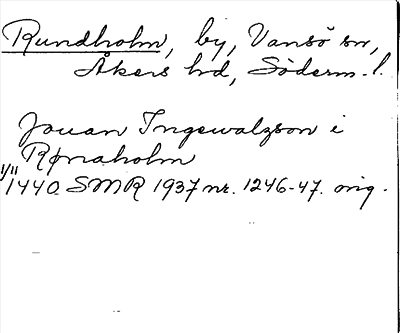 Rundholm, by, Vansö sn,
Åkers hd, Söderm. l.
Jouan Ingewalzson i
Rønaholm
1/11
1440. SMR 1937 nr. 1246-47. orig.